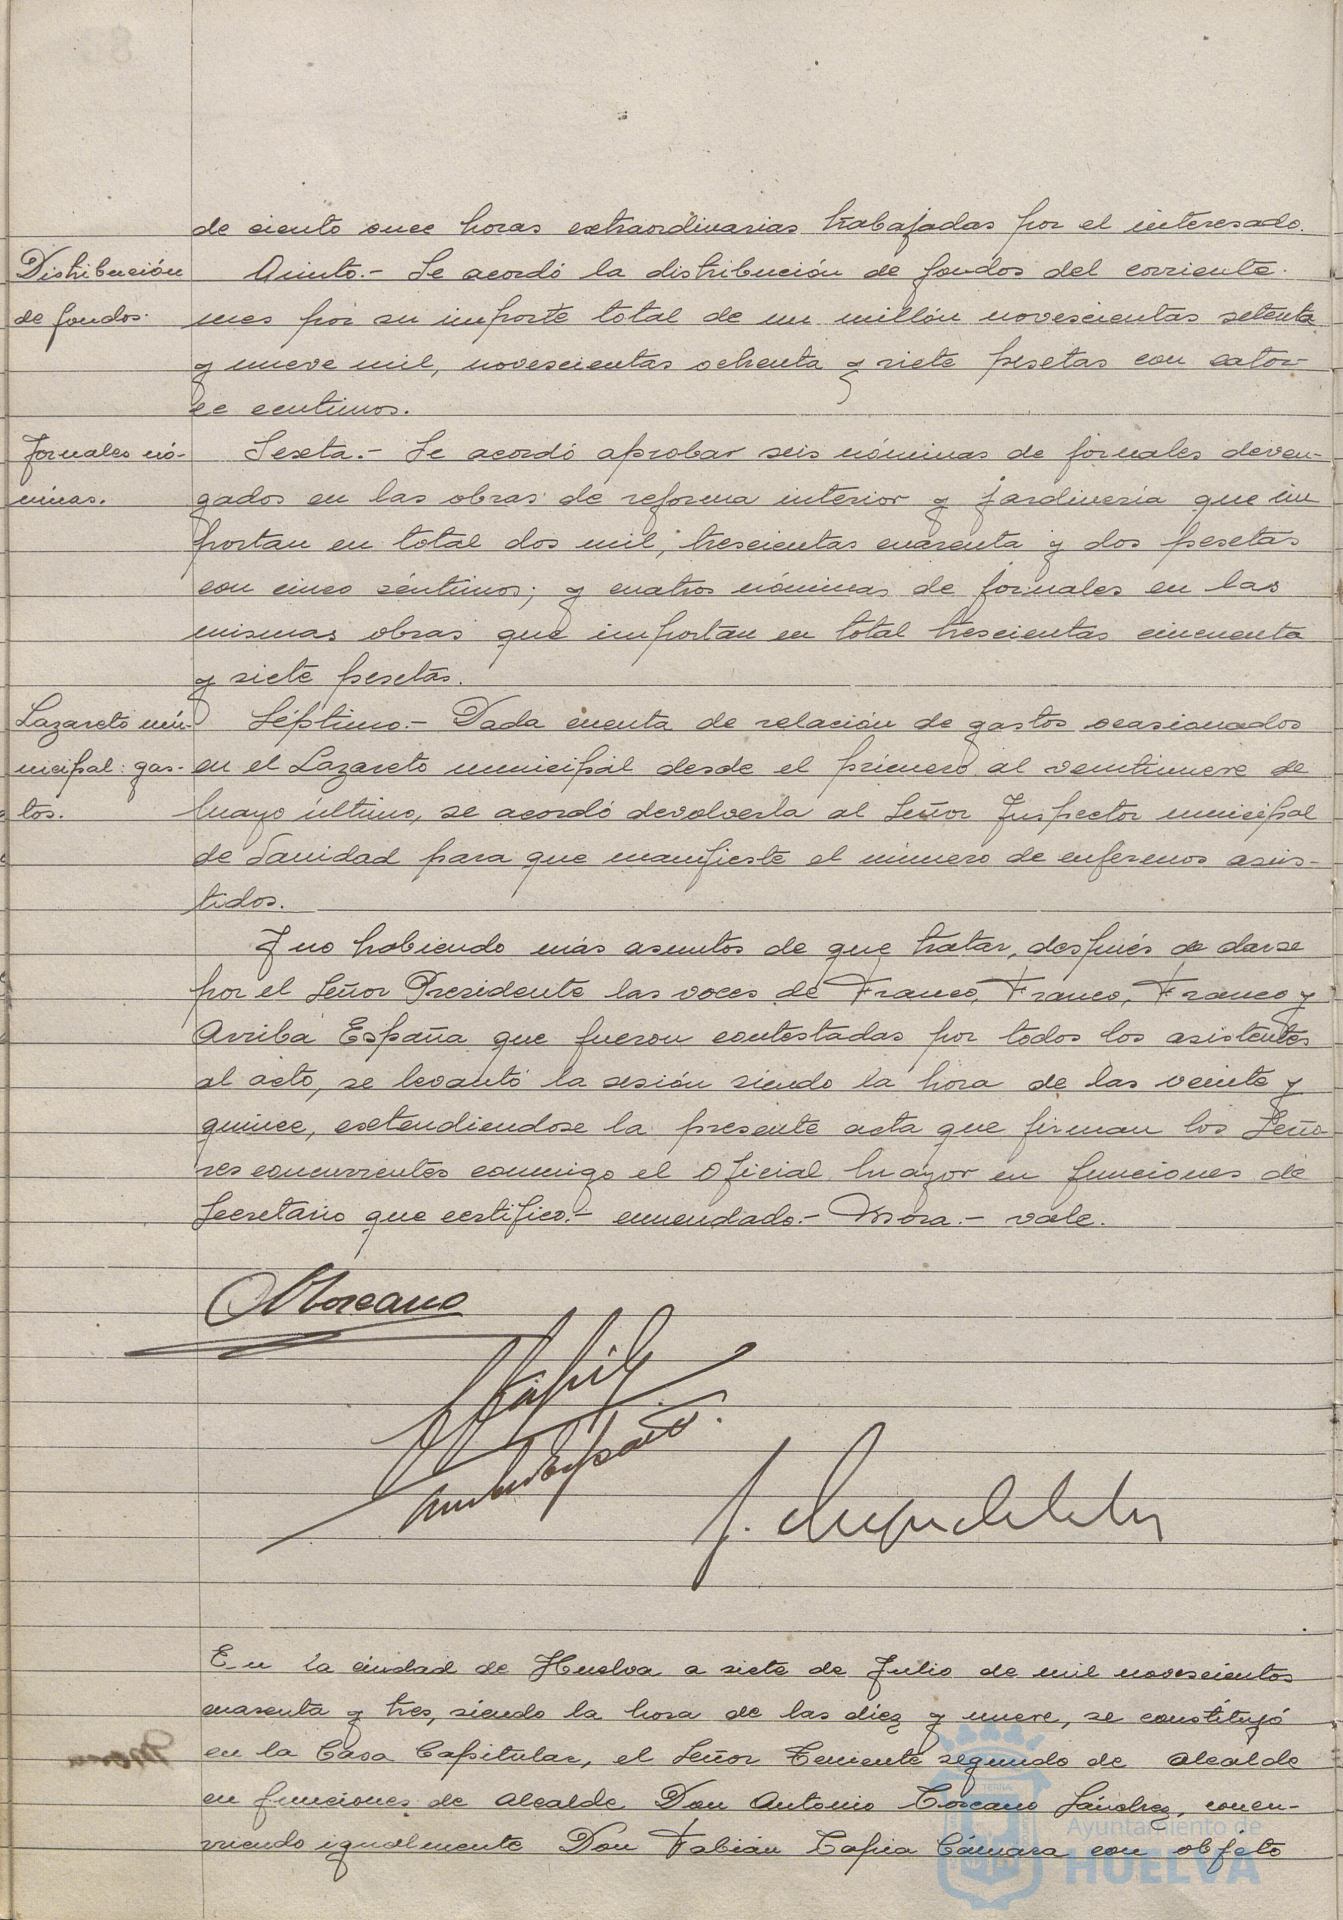 de ciento once horas extraordinarias trabajadas por el interesado.
Distribución
de fondos.
Quinto.- Se acordó la distribución de fondos del corriente
mes por su importe total de un millón novescientas setenta
y nueve mil, novescientas ochenta y siete pesetas con cator-
ce centimos.
Jornales nó-
minas.
Sexta.- Se acordó aprobar seis nóminas de jornales deven-
gados en las obras de reforma interior y jardineria que im
portan en total dos mil, trescientas cuarenta y dos pesetas
con cinco céntimos; y cuatro nóminas de jornales en las
mismas obras que importan en total trescientas cincuenta
y siete pesetas.
Lazareto mu-
nicipal: gas-
tos.
Séptimo.- Dada cuenta de relación de gastos ocasionados
en el Lazareto municipal desde el primero al veintinueve de
Mayo último, se acordó devolverla al Señor Inspector municipal
de Sanidad para que manifieste el número de enfermos asis-
tidos.
Y no habiendo más asuntos de que tratar, después de darse
por el Señor Presidente las voces de Franco, Franco, Franco y
Arriba España que fueron contestadas por todos los asistentes
al acto, se levantó la sesión siendo la hora de las veinte y
quince, extendiendose la presente acta que firman los Seño
res concurrentes conmigo el Oficial Mayor en funciones de
Secretario que certifico.- enmendado.- Mora.- vale.
Toscano
F Tapia
En la ciudad de Huelva a siete de Julio de mil novescientos
cuarenta y tres, siendo la hora de las diez y nueve, se constituyó
en la Casa Capitular, el Señor Teniente segundo de Alcalde
en funciones de Alcalde Don Antonio Toscano Sánchez, concu-
rriendo igualmente Don Fabián Tapia Cámara con objeto
Ayuntamiento de
HUELVA